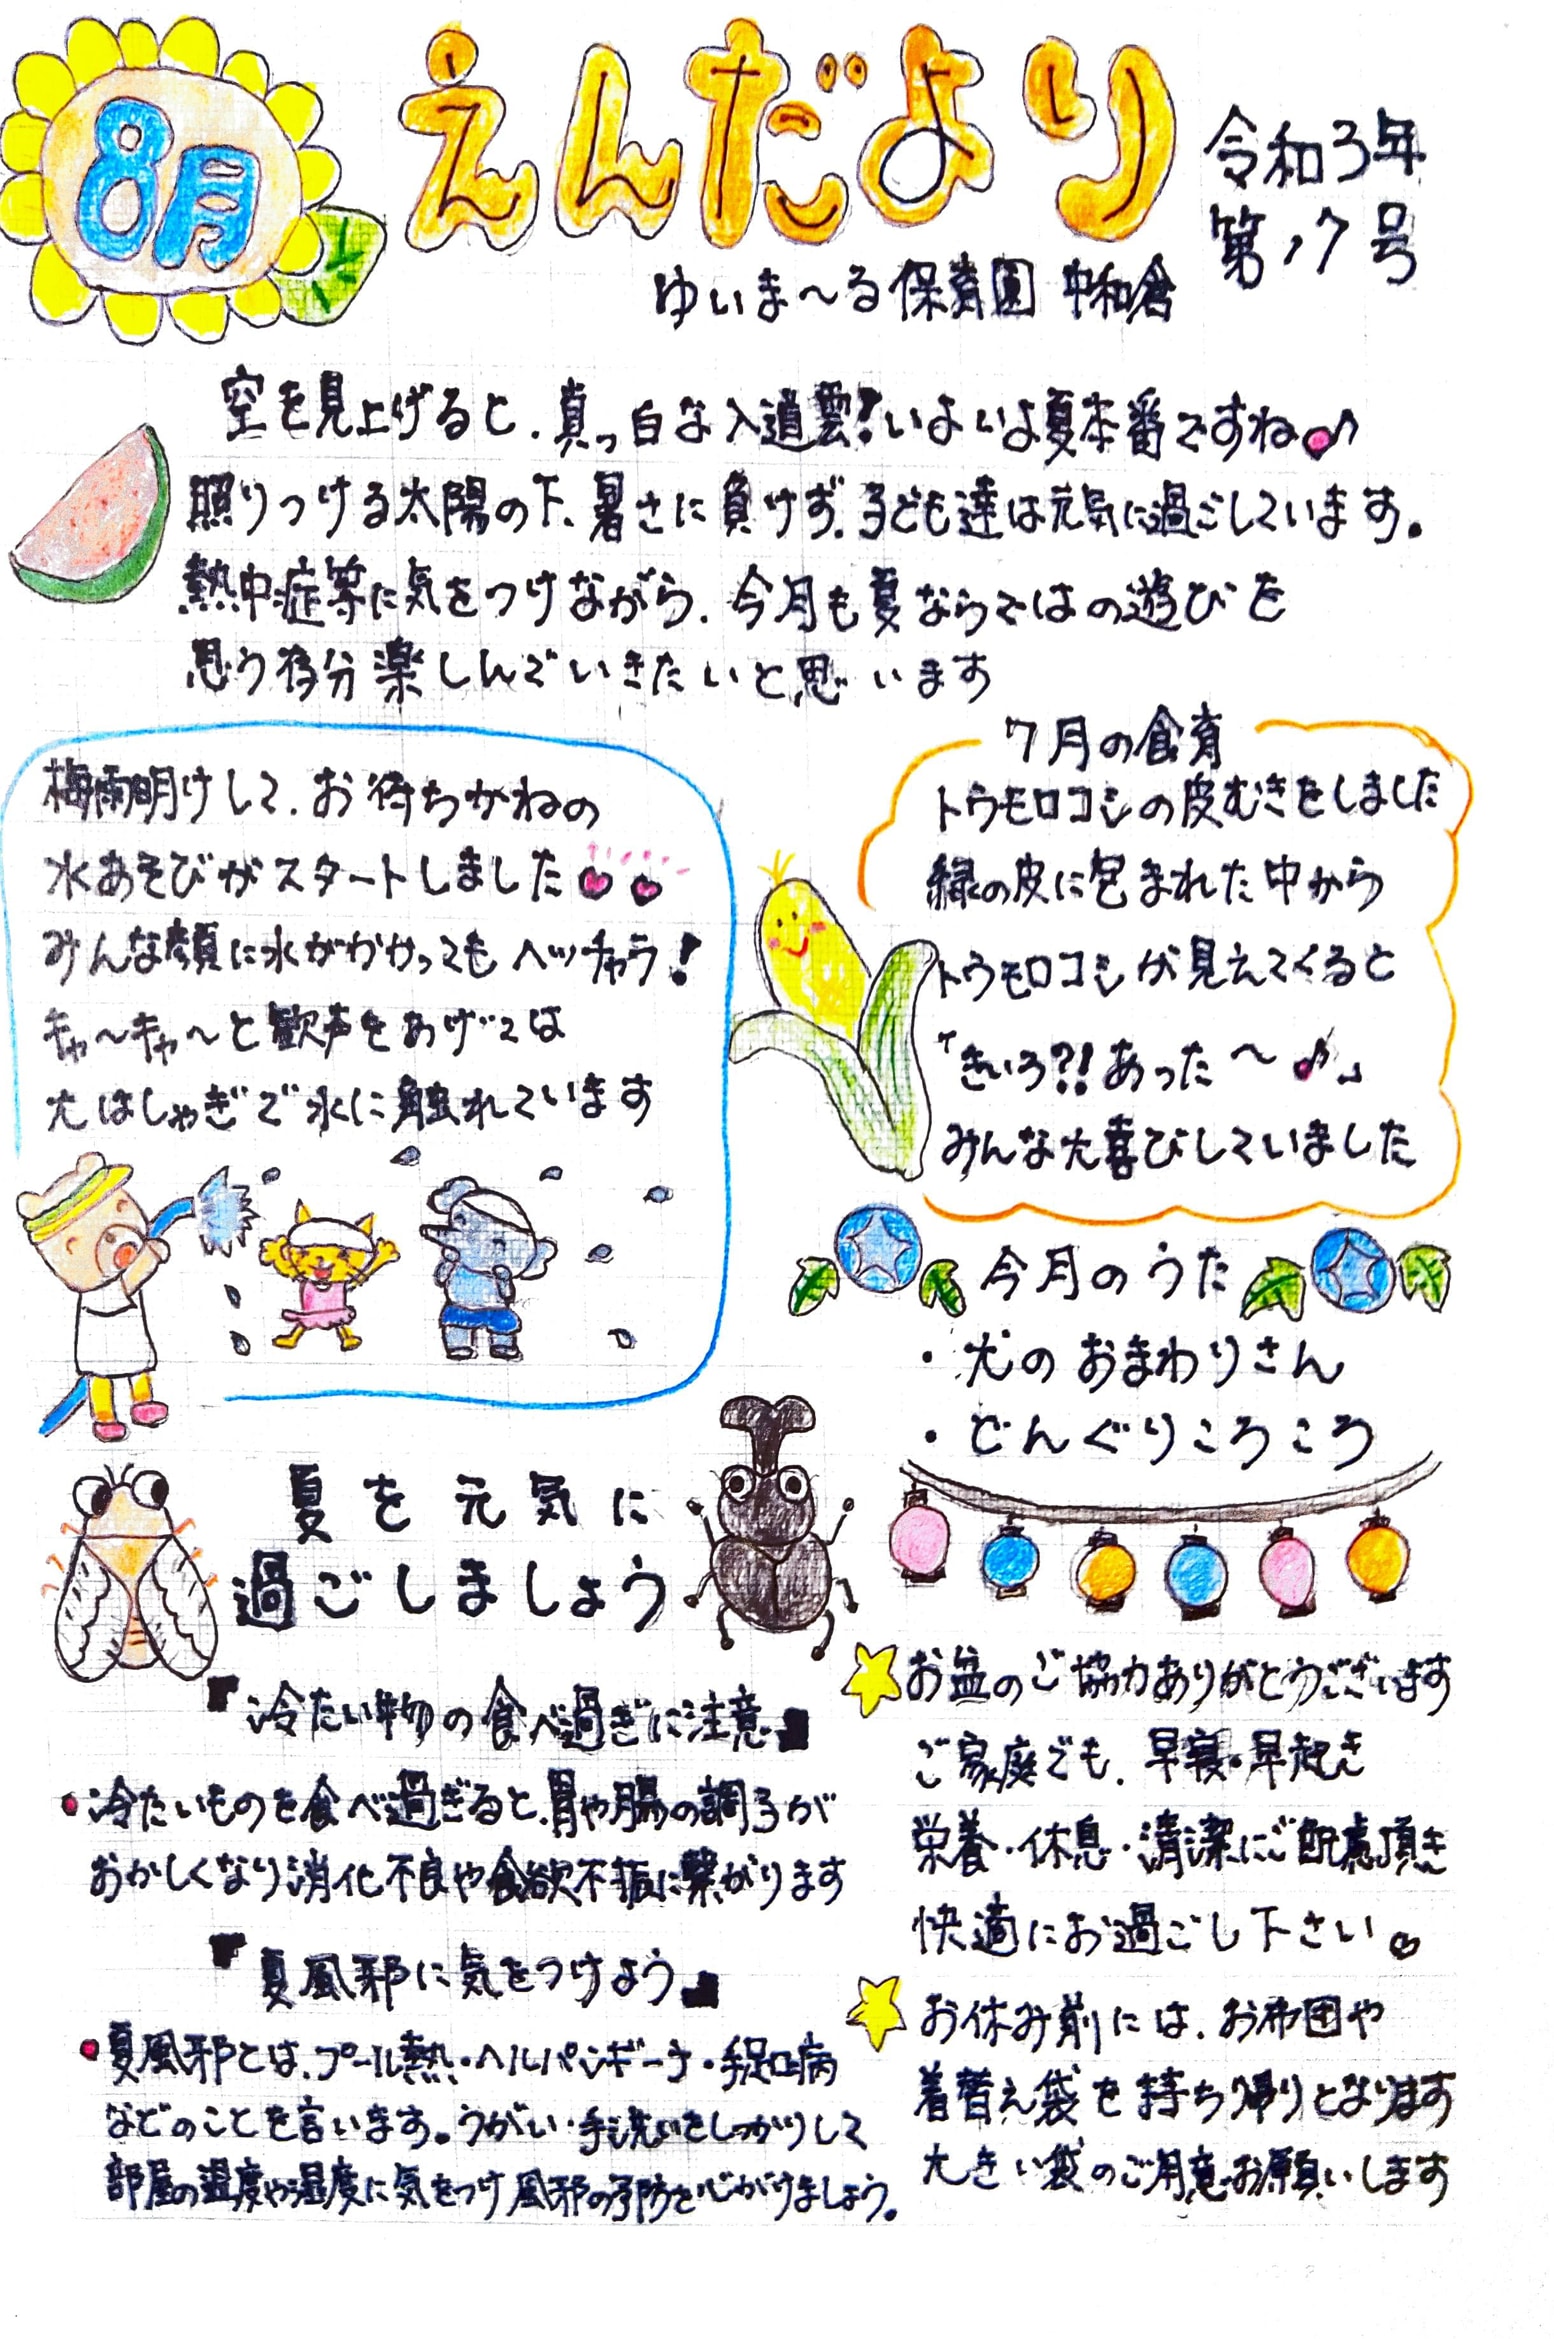 8月
えんだより
令和3年
第17号
ゆいま～る保育園 中和倉
空を見上げると、真っ白な入道雲!いよいよ夏本番ですね♪
照りつける太陽の下、暑さに負けず、子ども達は元気に過ごしています。
熱中症等に気をつけながら、今月も夏ならではの遊びを
思う存分楽しんでいきたいと思います
梅雨明けして、お待ちかねの
水あそびがスタートしました
みんな顔に水がかかってもヘッチャラ!
キャ～キャ～と歓声をあげては
大はしゃぎで水に触れています
7月の食育
トウモロコシの皮むきをしました
緑の皮に包まれた中から
トウモロコシが見えてくると
「きいろ?!あった～♪」
みんな大喜びしていました
今月のうた
・犬のおまわりさん
・どんぐりころころ
夏を元気に
過ごしましょう
『冷たい物の食べ過ぎに注意』
・冷たいものを食べ過ぎると、胃や腸の調子が
おかしくなり消化不良や食欲不振に繋がります
『夏風邪に気をつけよう』
・夏風邪とは、プール熱・ヘルパンギーナ・手足口病
などのことを言います。うがい・手洗いをしっかりして
部屋の温度や湿度に気をつけ風邪の予防を心がけましょう。
お盆のご協力ありがとうございます
ご家庭でも、早寝・早起き
栄養・休息・清潔にご配慮頂き
快適にお過ごし下さい
お休み前には、お布団や
着替え袋を持ち帰りとなります
大きい袋のご用意お願いします